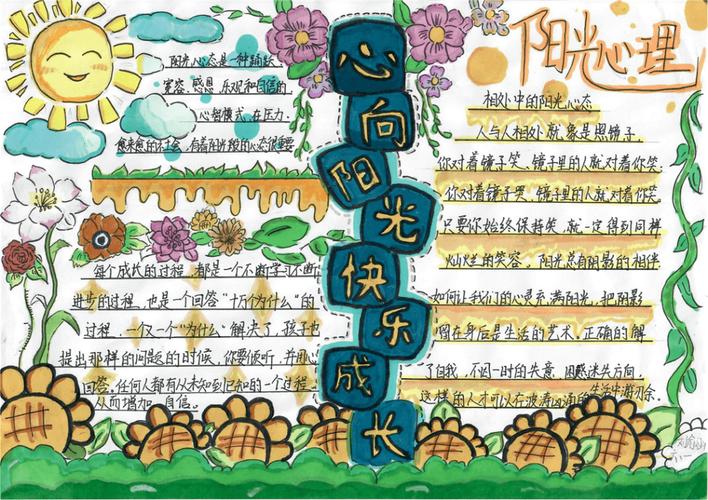 心向阳光快乐成长
阳光心理
阳光心态是一种
笑容、感恩、乐观和自信的
心智模式,在压力
愈来愈的社会,有着阳光般的心态很重要
每个成长的过程,都是一个不断学习不断
进步的过程,也是一个回答“十万个为什么”的
过程,一仅一个“为什么”解决了,孩子也
提出那样的问题的时候,你要倾听,并用心
回答,任何人都有从未知到已知的一个过程,
从而增加 自信。
相处中的阳光心态
人与人相处就象是照镜子,
你对着镜子笑、镜子里的人就对着你笑,
你对着镜子哭、镜子里的人就对着你哭,
只要你始终保持笑,就一定得到同样
灿烂的笑容。阳光总有阴影的相伴
如何让我们的心灵充满阳光,把阴影
留在身后是生活的艺术,正确的解
了自我,不因一时的失意、困惑迷失方向,
这样的人才可以在波涛汹涌的生活中游刃余.
六一